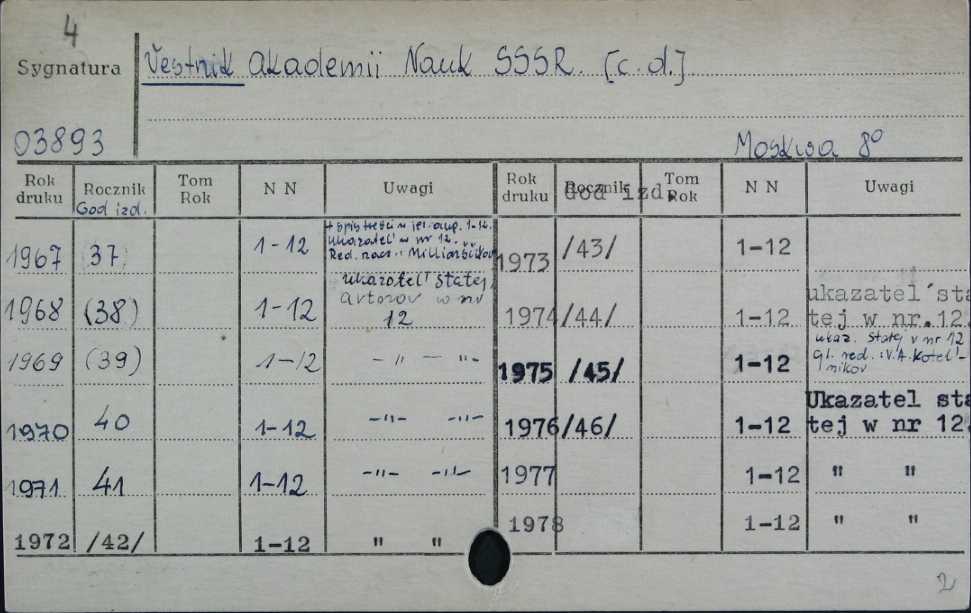 4
Sygnatura Vestnik Akademii Nauk SSSR. [c.d.]
03893 Moskwa 8°
Rok druku Rocznik God izd. Tom Rok N N Uwagi Rok druku Rocznik God izd. Tom Rok N N Uwagi
1967 (37) 1-12 + spis treści w jęz. ang. 1-12.
ukazatel' w nr 12.
Red. nacz.:
1968 (38) 1-12 ukazatel' statej,
avtorov w nr
12
1969 (39) 1-12 -"- -"-
1970 40 1-12 -"- -"-
1971 41 1-12 -"- -"-
1972 /42/ 1-12 " "
1973 /43/ 1-12
1974 /44/ 1-12 ukazatel´sta
tej w nr.12.
1975 /45/ 1-12 ukaz. statej v nr 12
gl. red.: V.A. Kotel'-
nikov
1976 /46/ 1-12 Ukazatel sta
tej w nr 12.
1977 1-12 " "
1978 1-12 " "
2